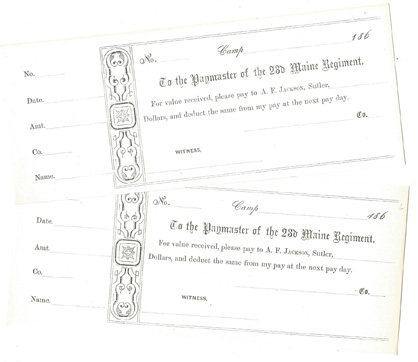 No. No. Camp 186
To the Paymaster of the 23d Maine Regiment.
Date.
For value received, please pay to A. F. Jackson, Sutler,
Amt. Dollars, and deduct the same from my pay at the next pay day.
Co.
Co.
WITNESS,
Name.
No. Camp 186
Date.
To the Paymaster of the 23d Maine Regiment.
For value received, please pay to A. F. Jackson, Sutler,
Amt.
Dollars, and deduct the same from my pay at the next pay day.
Co. Co.
Name. WITNESS,